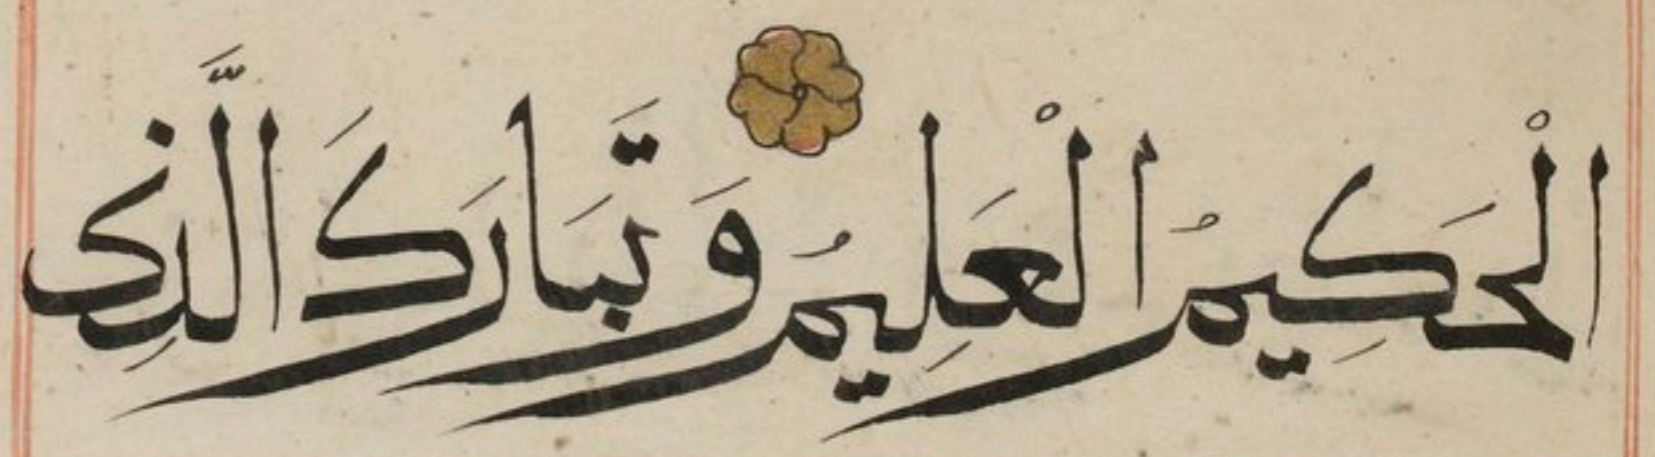 الْحَكِيمُ الْعَلِيمُ وَتَبَارَكَ الَّذِى